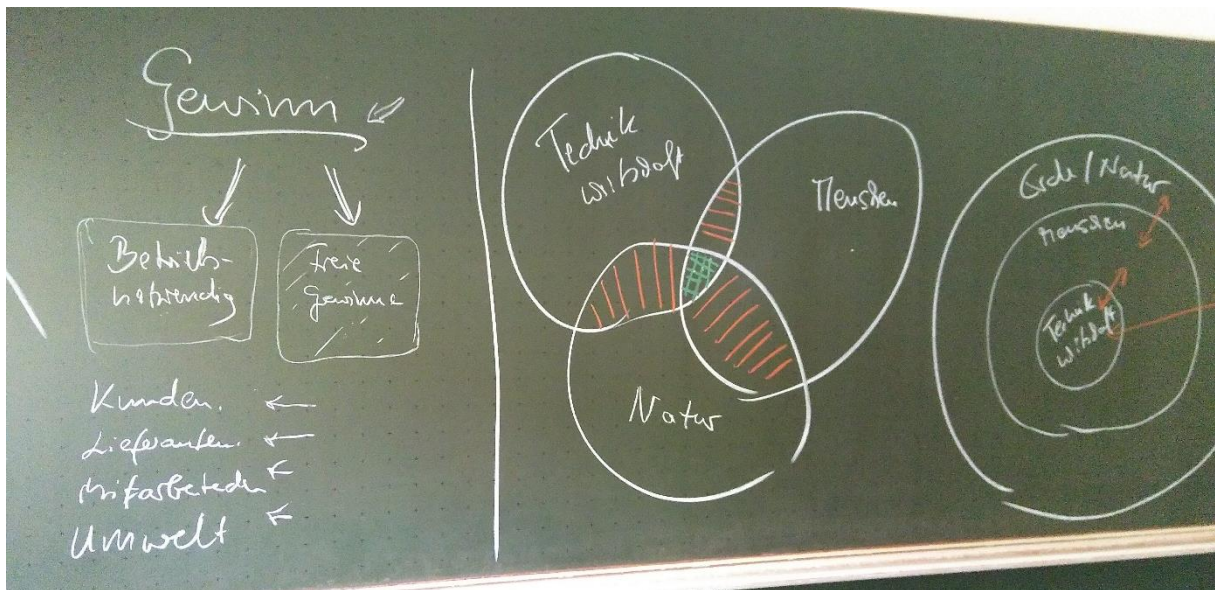 Gewinn
Betriebs-
notwendig
freie
Gewinne
Kunden.
Lieferanten.
Mitarbeitenden
Umwelt
Technik
Wirtschaft
Menschen
Natur
Erde / Natur
Menschen
Technik
Wirtschaft